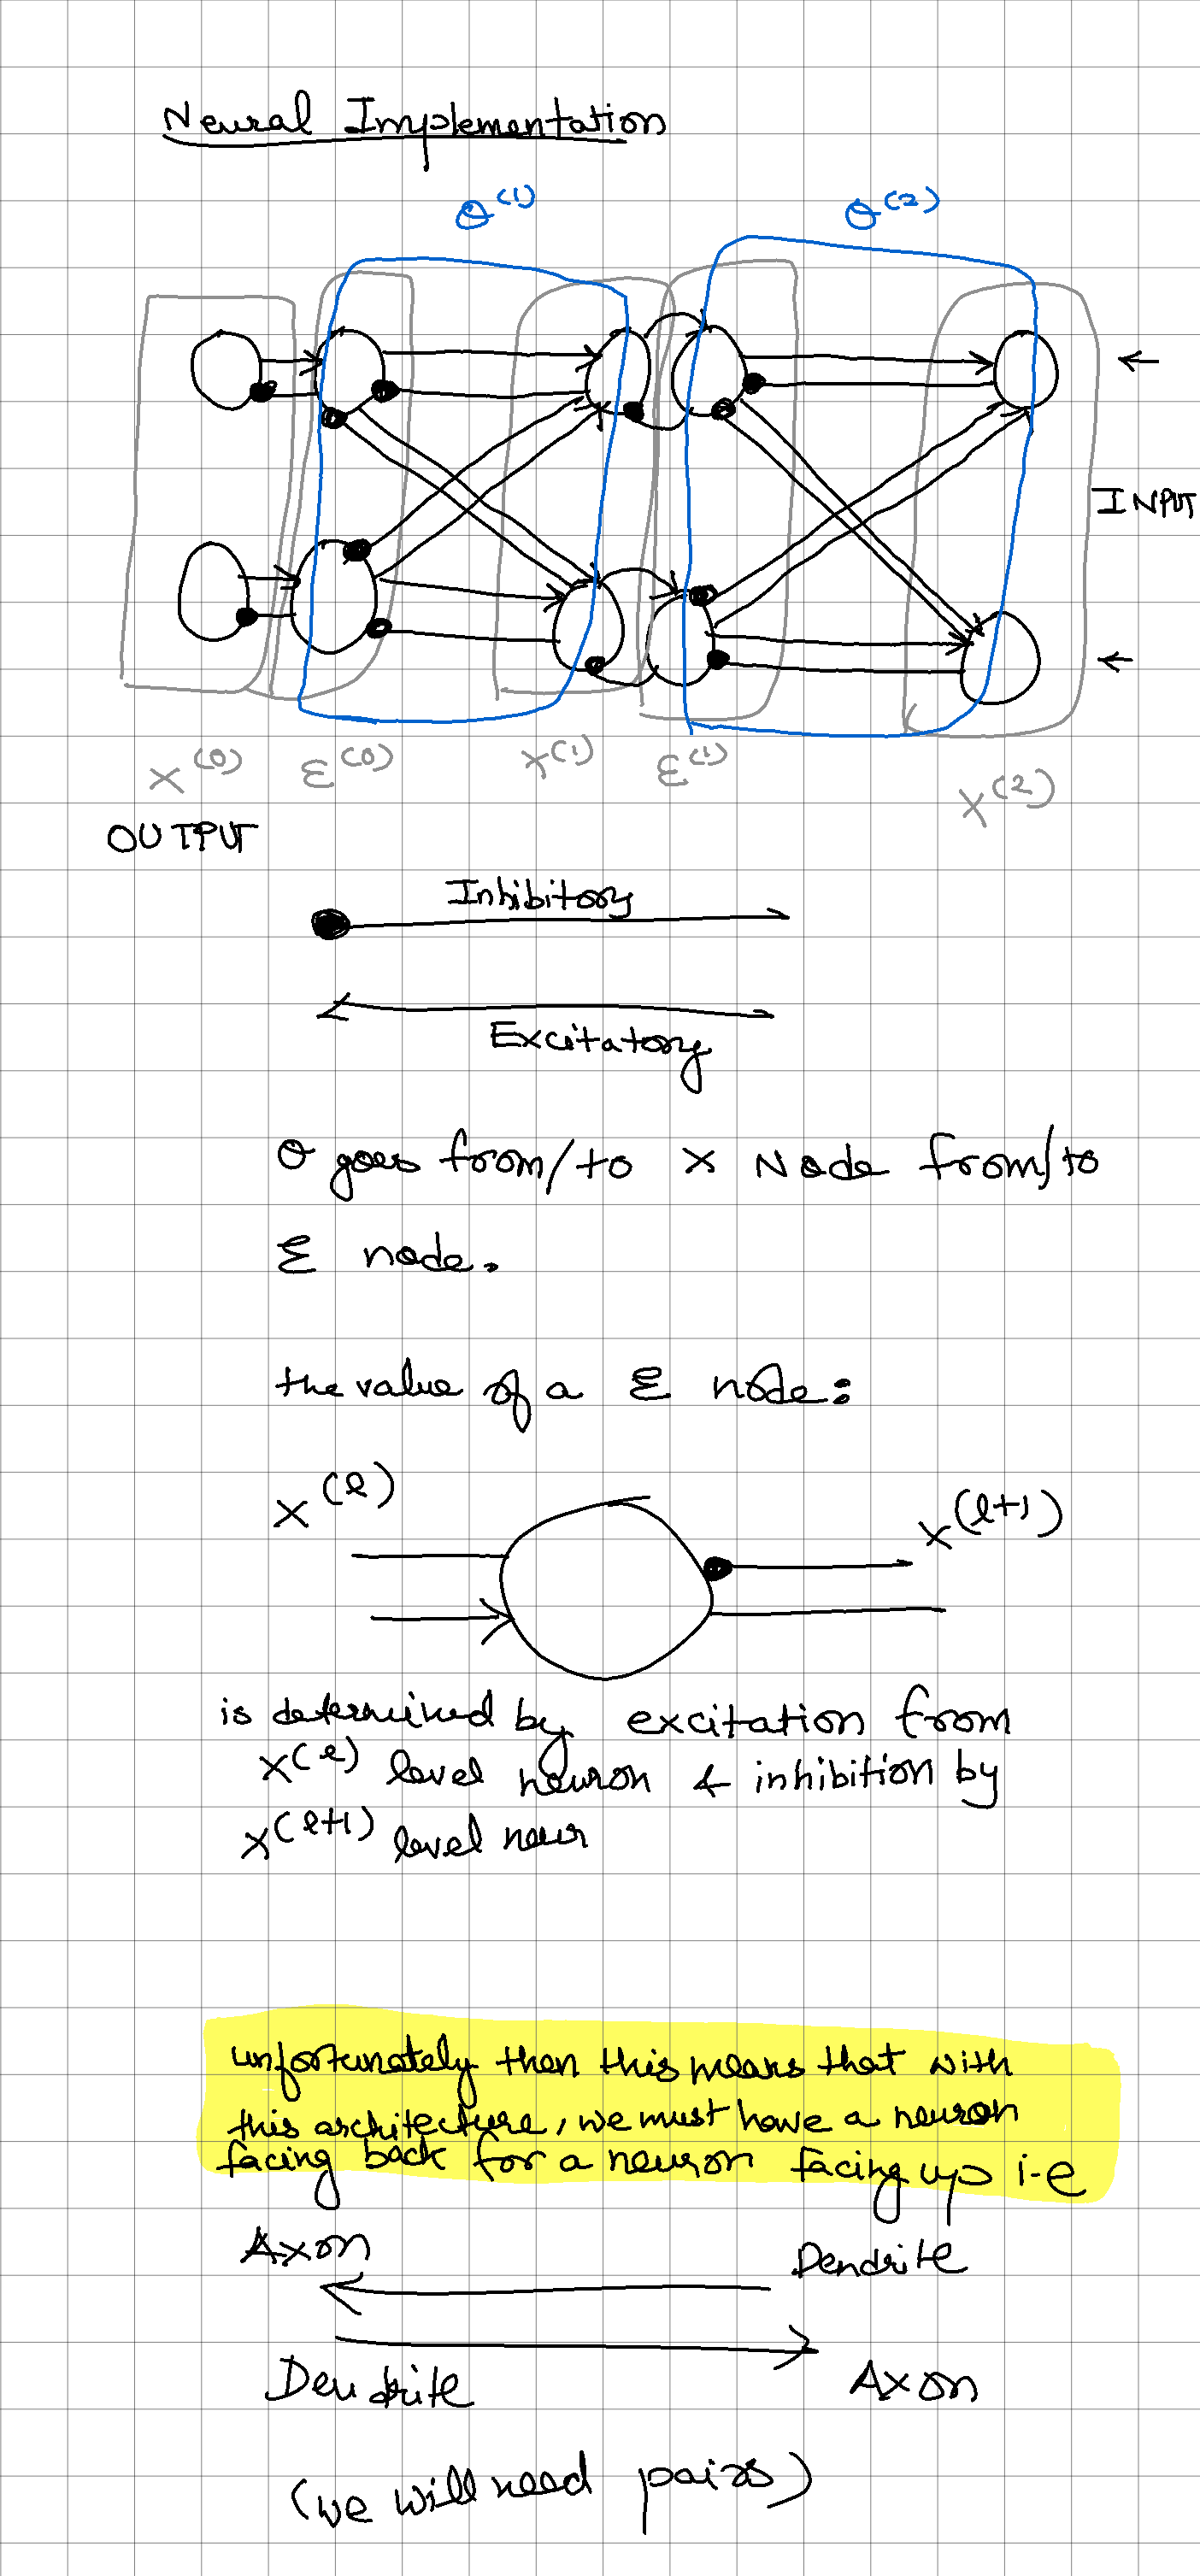 Neural Implementation
θ(1) θ(2)
INPUT
x(0) ε(0) x(1) ε(1) x(2)
OUTPUT
Inhibitory
Excitatory
θ goes from/to x Node from/to
ε node.
the value of a ε node:
x(l) x(l+1)
is determined by excitation from
x(l) level neuron & inhibition by
x(l+1) level neur
unfortunately then this means that with
this architecture, we must have a neuron
facing back for a neuron facing up i-e
Axon Dendrite
Dendrite Axon
(we will need pairs)